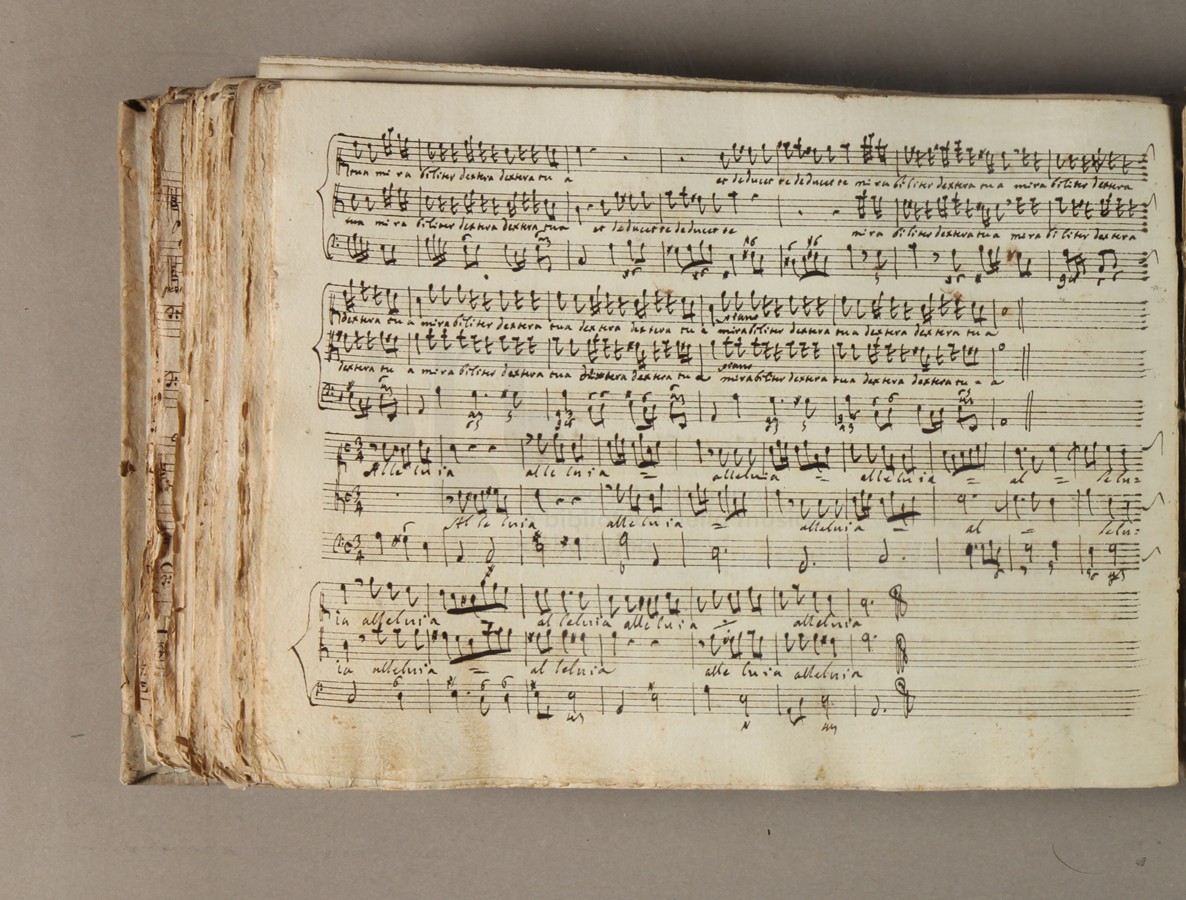 tua mi ra biliter dextera dextera tu a et deducet te deducet te mi ra biliter dextera tu a mirabiliter dextera
tua mi ra biliter dextera dextera tua et deducet te deducet te mira biliter dextera tua mira biliter dextera
dextera tu a mirabiliter dextera tua dextera dextera tu a mirabiliter dextera tua dextera dextera tu a
piano
dextera tu a mirabiliter dextera tua dextera dextera tu a mirabiliter dextera tua dextera dextera tu a
piano
Alle lu ia alle luia = alleluia = alleluia = al = lelu=
Al le luia alle lu ia = alleluia = al = lelu=
ia alleluia = al leluia alle lu ia = alleluia
ia alleluia = al leluia alle luia alleluia